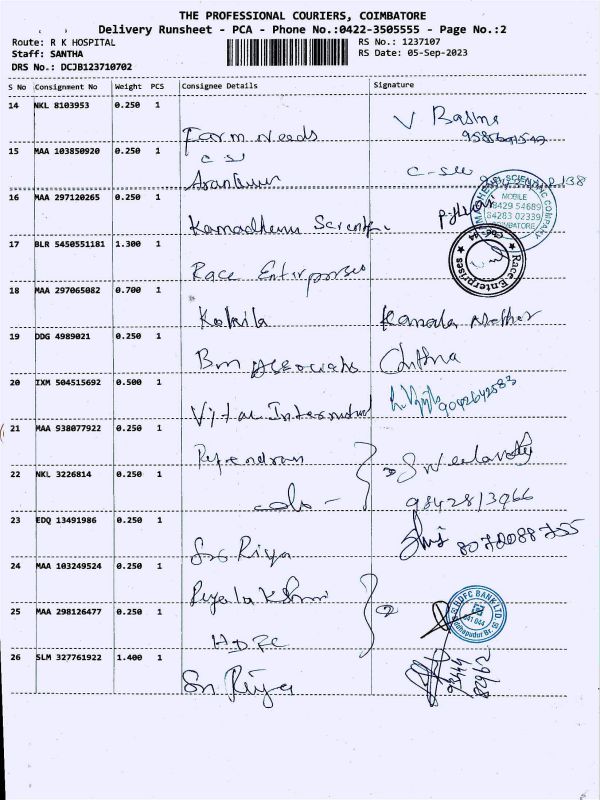 THE PROFESSIONAL COURIERS, COIMBATORE
Delivery Runsheet - PCA - Phone No.:0422-3505555 - Page No.:2
Route: R K HOSPITAL
Staff: SANTHA
DRS No.: DCJB123710702
RS No.: 1237107
RS Date: 05-Sep-2023
S No Consignment No Weight PCS Consignee Details Signature
14 NKL 8103953 0.250 1
Farm Needs V Basma
15 MAA 103850920 0.250 1
C S
16 MAA 297120265 0.250 1
Kamadhenu
MOBILE
98429 54689
84283 02339
COIMBATORE
17 BLR 5450551181 1.300 1
Race Enterprises
Race Enterprises
18 MAA 297065082 0.700 1
Kokila Kamala
19 DDG 4989021 0.250 1
Bm Associats Chithra
20 IXM 504515692 0.500 1
9042642583
21 MAA 938077922 0.250 1
Rajendran
22 NKL 3226814 0.250 1
9842813966
23 EDQ 13491986 0.250 1
Sri Riya
24 MAA 103249524 0.250 1
25 MAA 298126477 0.250 1
HDFC
HDFC BANK LTD.
641 044
26 SLM 327761922 1.400 1
Sri Riya